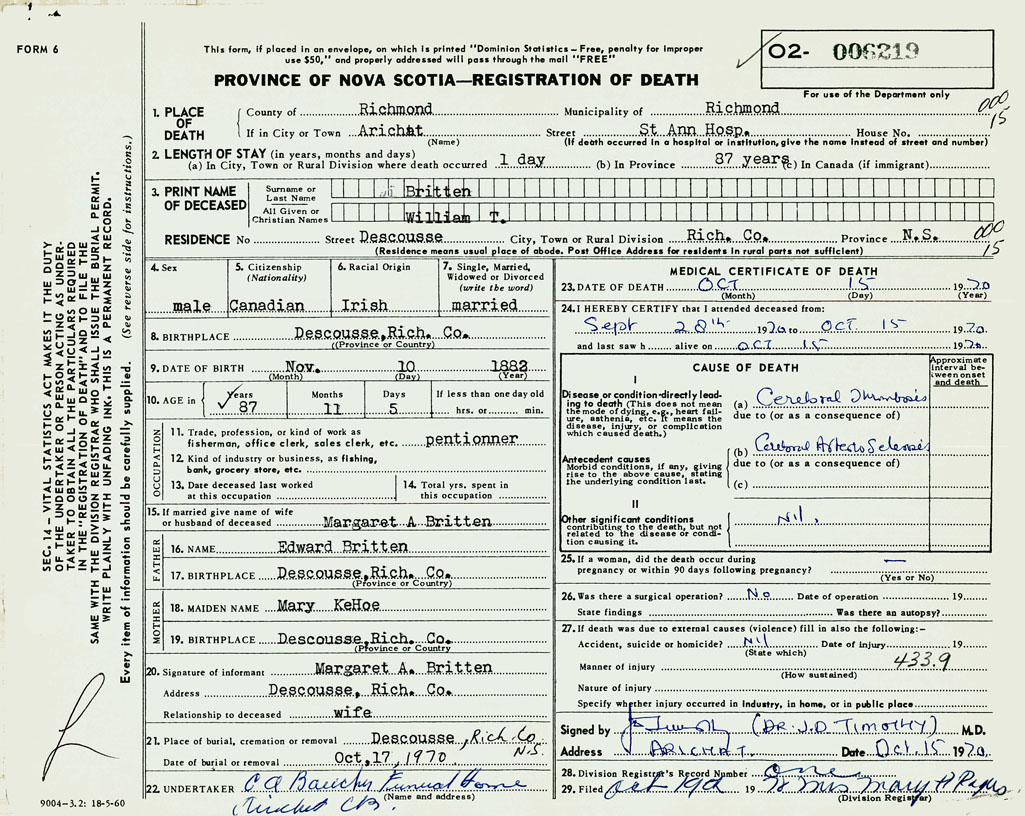 FORM 6
This form, if placed in an envelope, on which is printed "Dominion Statistics – Free, penalty for improper
use $50," and properly addressed will pass through the mail "FREE"
PROVINCE OF NOVA SCOTIA—REGISTRATION OF DEATH
02- 006219
For use of the Department only
000
15
1. PLACE OF DEATH
County of Richmond Municipality of Richmond
If in City or Town Arichat Street St Ann Hosp. House No.
(Name) (If death occurred in a hospital or institution, give the name instead of street and number)
2. LENGTH OF STAY (in years, months and days)
(a) In City, Town or Rural Division where death occurred 1 day (b) In Province 87 years (c) In Canada (if immigrant)
3. PRINT NAME OF DECEASED
Surname or Last Name Britten
All Given or Christian Names William T.
RESIDENCE No Street Descousse City, Town or Rural Division Rich. Co. Province N.S.
000
15
(Residence means usual place of abode. Post Office Address for residents in rural parts not sufficient)
4. Sex male
5. Citizenship (Nationality) Canadian
6. Racial Origin Irish
7. Single, Married, Widowed or Divorced (write the word) married
8. BIRTHPLACE Descousse,Rich. Co.
((Province or Country)
9. DATE OF BIRTH Nov. 10 1882
(Month) (Day) (Year)
10. AGE in Years 87 Months 11 Days 5 If less than one day old hrs. or min.
OCCUPATION
11. Trade, profession, or kind of work as
fisherman, office clerk, sales clerk, etc. pentionner
12. Kind of industry or business, as fishing,
bank, grocery store, etc.
13. Date deceased last worked
at this occupation
14. Total yrs. spent in
this occupation
15. If married give name of wife
or husband of deceased Margaret A Britten
FATHER
16. NAME Edward Britten
17. BIRTHPLACE Descousse,Rich. Co.
(Province or Country)
MOTHER
18. MAIDEN NAME Mary KeHoe
19. BIRTHPLACE Descousse,Rich. Co.
(Province or Country
20. Signature of informant Margaret A. Britten
Address Descousse, Rich. Co.
Relationship to deceased wife
21. Place of burial, cremation or removal Descousse, Rich Co
N.S
Date of burial or removal Oct, 17, 1970
22. UNDERTAKER Funeral Home
(Name and address)
C.B.
MEDICAL CERTIFICATE OF DEATH
23. DATE OF DEATH OCT 15 1970
(Month) (Day) (Year)
24. I HEREBY CERTIFY that I attended deceased from:
Sept 28th 1970 to OCT. 15 1970.
and last saw h alive on OCT 15 1970.
CAUSE OF DEATH
Approximate interval between onset and death
I
Disease or condition directly leading to death (This does not mean
the mode of dying, e.g., heart failure, asthenia, etc. It means the
disease, injury, or complication
which caused death.)
(a) Cerebral Thrombosis
due to (or as a consequence of)
Antecedent causes
Morbid conditions, if any, giving
rise to the above cause, stating
the underlying condition last.
(b) Cerebral ArterioSclerosis
due to (or as a consequence of)
(c)
II
Other significant conditions
contributing to the death, but not
related to the disease or condition causing it.
Nil,
25. If a woman, did the death occur during
pregnancy or within 90 days following pregnancy? —
(Yes or No)
26. Was there a surgical operation? No Date of operation 19
State findings Was there an autopsy?
27. If death was due to external causes (violence) fill in also the following:–
Accident, suicide or homicide? Nil Date of injury 19
(State which)
Manner of injury 433.9
(How sustained)
Nature of injury
Specify whether injury occurred in Industry, in home, or in public place
Signed by (DR. J.D TIMOTHY) M.D.
Address ARICHAT. Date Oct. 15 1970.
28. Division Registrar's Record Number one
29. Filed Oct 19th 19 70 Mrs Mary
(Division Registrar)
SEC. 14 – VITAL STATISTICS ACT MAKES IT THE DUTY
OF THE UNDERTAKER OR PERSON ACTING AS UNDER-
TAKER TO OBTAIN ALL THE PARTICULARS REQUIRED
IN THE "REGISTRATION OF DEATH" AND TO FILE THE
SAME WITH THE DIVISION REGISTRAR WHO SHALL ISSUE THE BURIAL PERMIT.
WRITE PLAINLY WITH UNFADING INK. THIS IS A PERMANENT RECORD.
Every item of information should be carefully supplied. (See reverse side for instructions.)
9004–3.2: 18-5-60